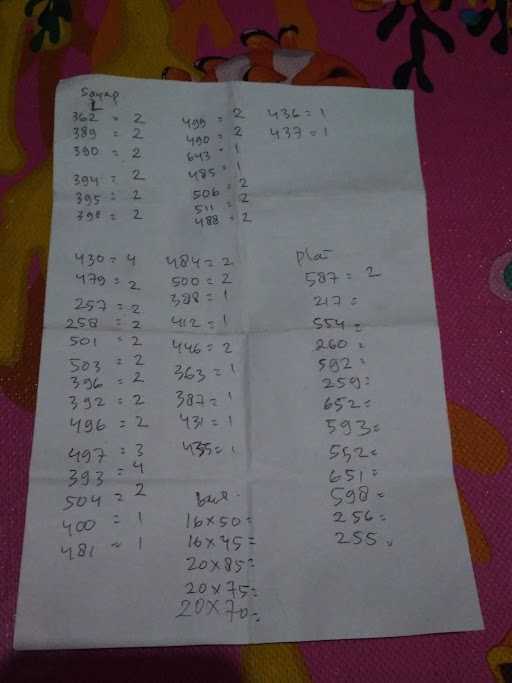 Sayap
L
362 = 2
389 = 2
390 = 2
394 = 2
395 = 2
398 = 2
499 = 2
490 = 2
643 = 1
485 = 1
506 = 2
511 = 2
488 = 2
436 = 1
437 = 1
430 = 4
479 = 2
257 = 2
258 = 2
501 = 2
503 = 2
396 = 2
392 = 2
496 = 2
497 = 3
393 = 4
504 = 2
400 = 1
481 = 1
484 = 2
500 = 2
388 = 1
412 = 1
446 = 2
363 = 1
387 = 1
431 = 1
435 = 1
16 x 50 =
16 x 45 =
20 x 85 =
20 x 75 =
20 x 70 =
plat
587 = 2
217 =
554 =
260 =
592 =
259 =
652 =
593 =
552 =
651 =
598 =
256 =
255 =